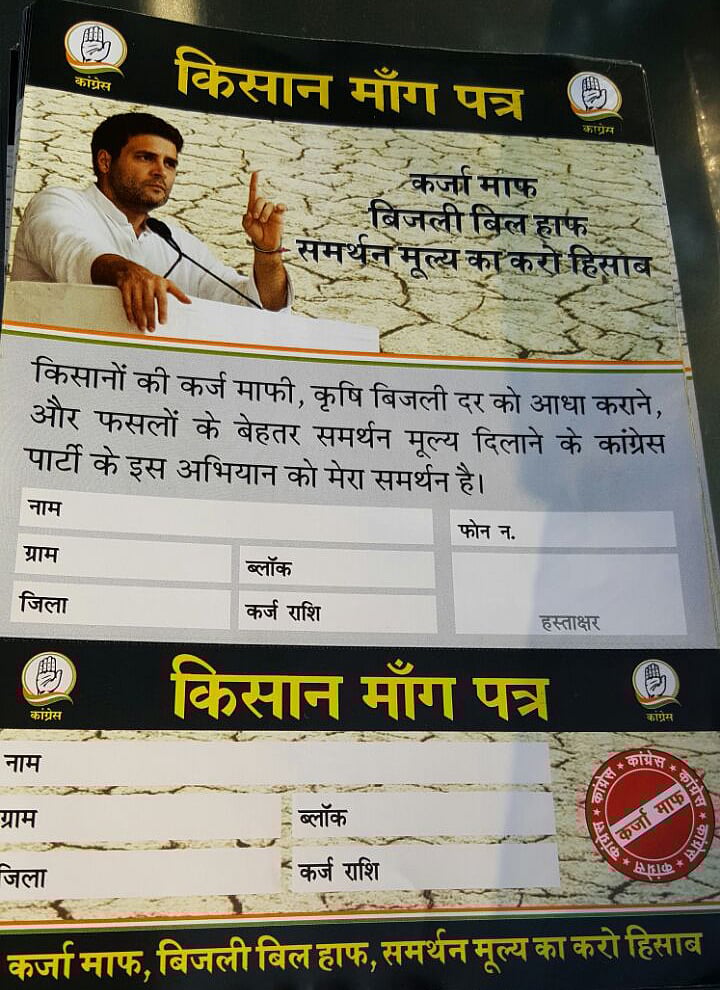 कांग्रेस
किसान माँग पत्र
कांग्रेस
कर्जा माफ
बिजली बिल हाफ
समर्थन मूल्य का करो हिसाब
किसानों की कर्ज माफी, कृषि बिजली दर को आधा कराने,
और फसलों के बेहतर समर्थन मूल्य दिलाने के कांग्रेस
पार्टी के इस अभियान को मेरा समर्थन है।
नाम
फोन न.
ग्राम
ब्लॉक
जिला
कर्ज राशि
हस्ताक्षर
कांग्रेस
किसान माँग पत्र
कांग्रेस
नाम
ग्राम
ब्लॉक
जिला
कर्ज राशि
कांग्रेस ★ कांग्रेस ★ कांग्रेस ★ कांग्रेस ★ कांग्रेस ★ कांग्रेस ★
कर्जा माफ
कर्जा माफ, बिजली बिल हाफ, समर्थन मूल्य का करो हिसाब